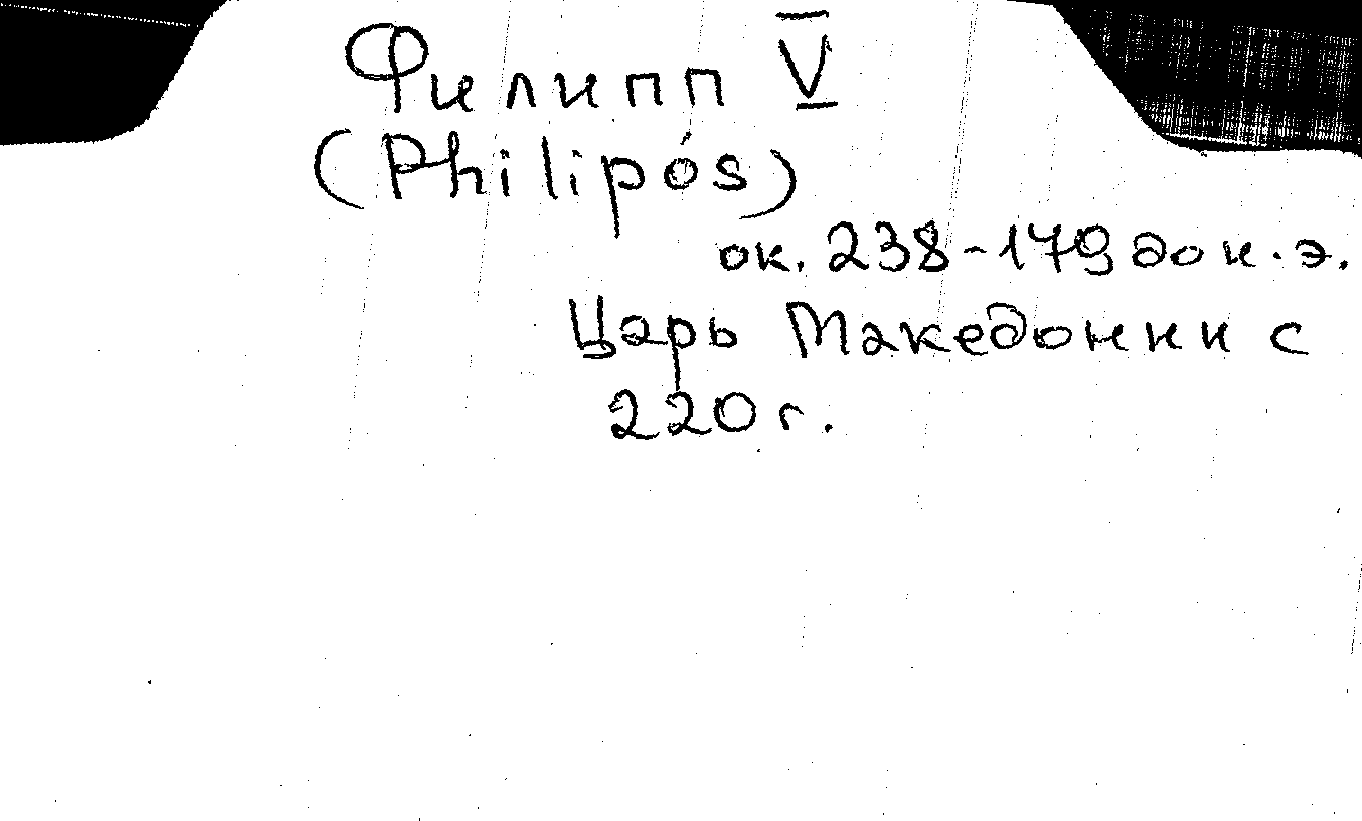 Филипп V
(Philipós)
ок. 238-179 до н.э.
Царь Македонии с
220 г.